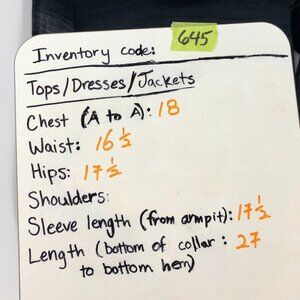 Inventory code: 645
Tops/Dresses/Jackets
Chest (A to A): 18
Waist: 16 ½
Hips: 17 ½
Shoulders:
Sleeve length (from armpit): 17 ½
Length (bottom of collar : 27
to bottom hem)